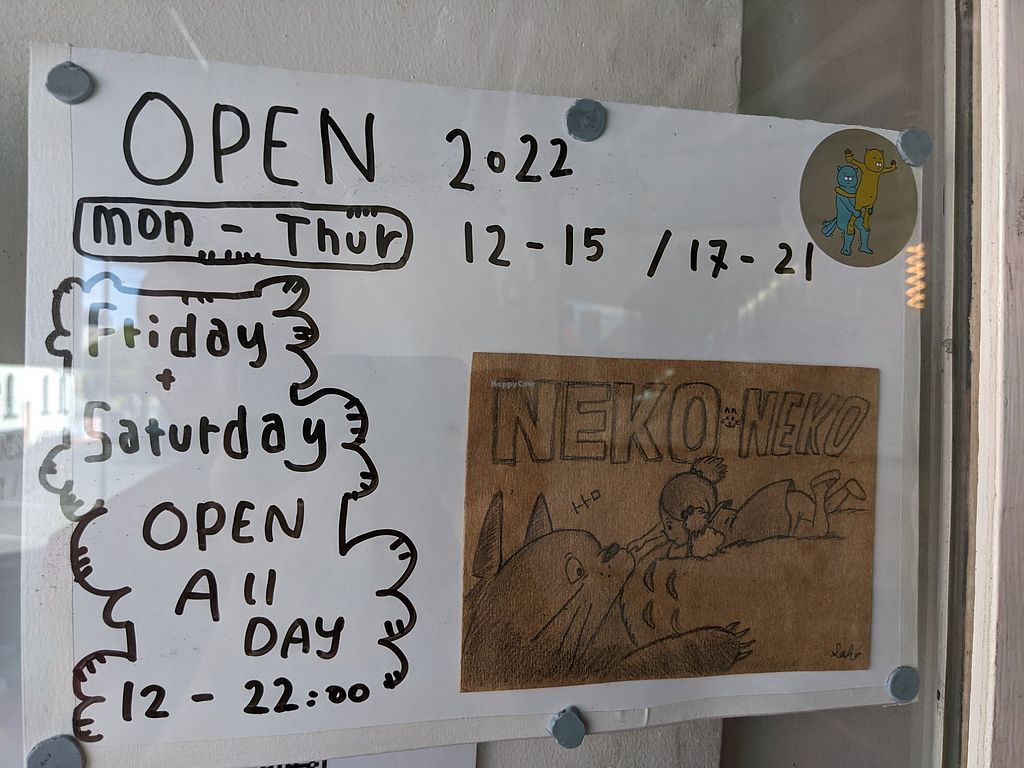 OPEN 2022
mon - Thur 12 - 15 / 17 - 21
Friday
+
Saturday
OPEN
All
DAY
12 - 22:00
HappyCow
NEKO NEKO